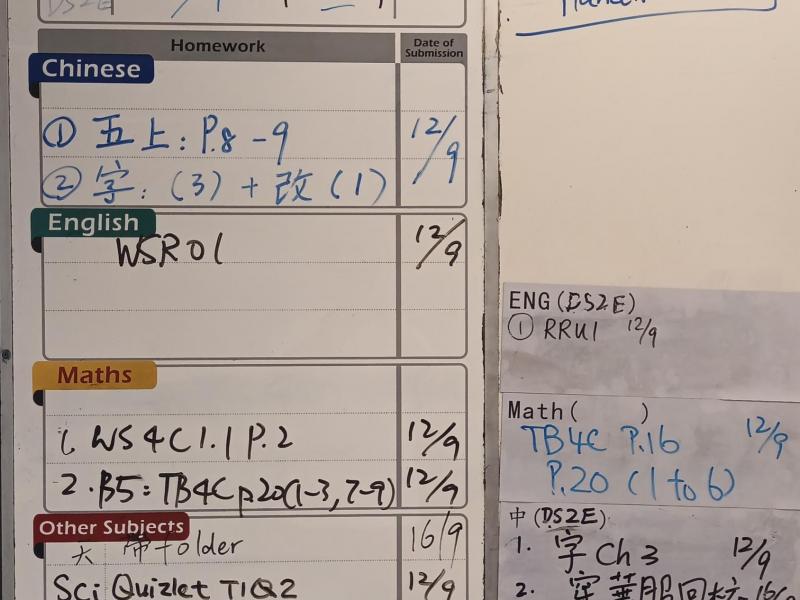 DS2E
Homework
Date of Submission
Chinese
① 五上: P.8 - 9 12/9
② 字: (3) + 改 (1)
English
WSR01 12/9
Maths
1. WS4C1.1 P.2 12/9
2. B5: TB4C p20(1-3, 7-9) 12/9
Other Subjects
帶folder 16/9
Sci Quizlet T1Q2 12/9
ENG(DS2E)
① RRU1 12/9
Math( )
TB4C P.16 12/9
P.20 (1 to 6)
中(DS2E)
1. 字 Ch 3 12/9
2. 穿華服回校 16/9